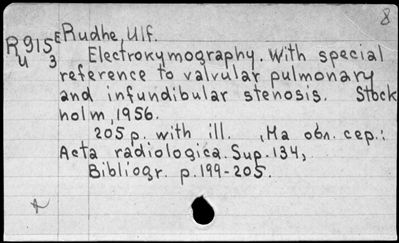 8
R 915 E Rudhe, Ulf.
u 3 Electrokymography. With special
reference to valvular pulmonary
and infundibular stenosis. Stock
holm, 1956.
205 p. with ill. , На обл. сер.:
Acta radiologica. Sup. 134,
Bibliogr. p. 199-205.